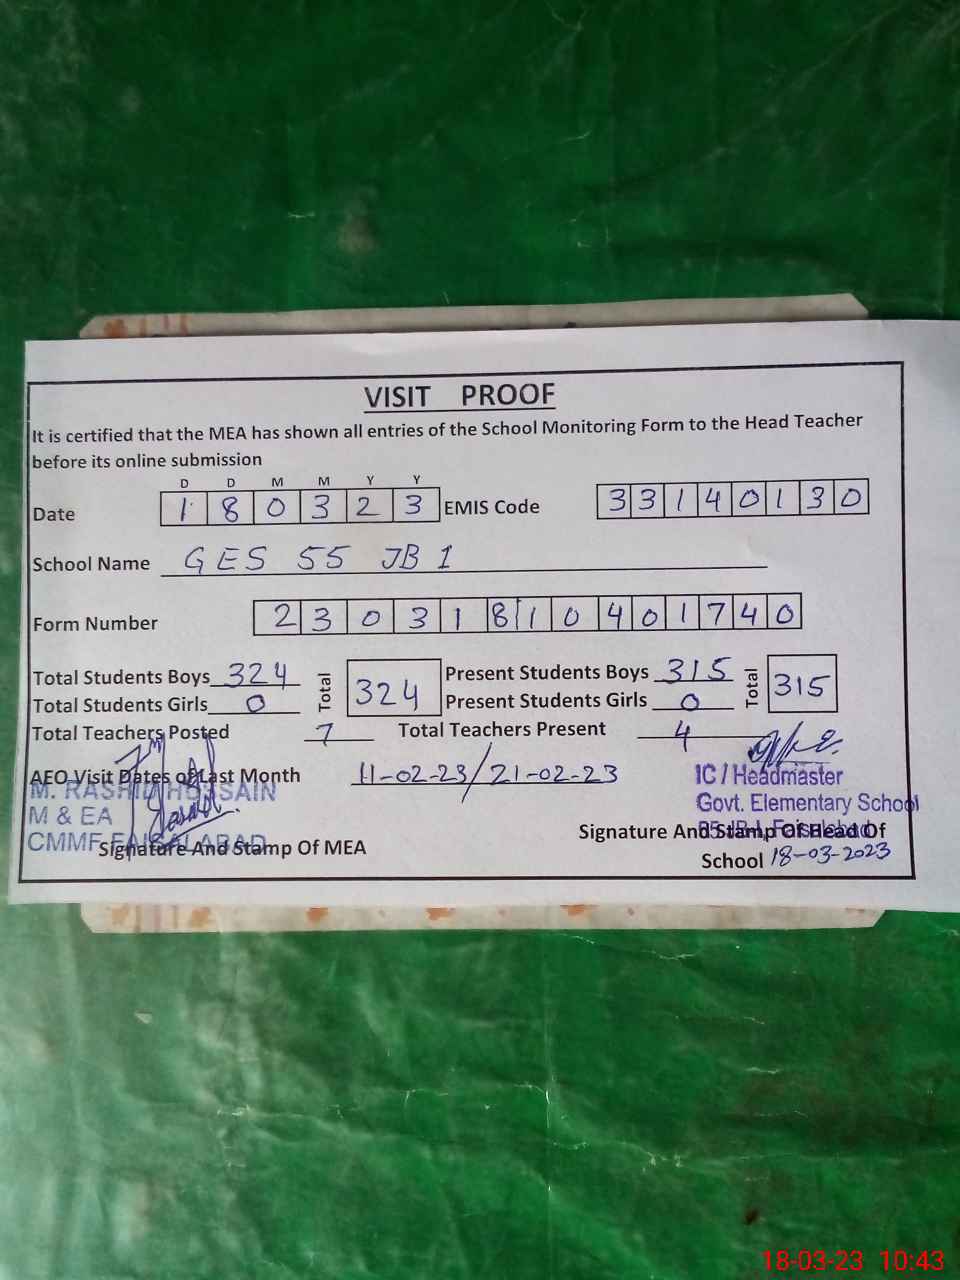 VISIT PROOF
It is certified that the MEA has shown all entries of the School Monitoring Form to the Head Teacher
before its online submission
D D M M Y Y
Date 1 8 0 3 2 3 EMIS Code 3 3 1 4 0 1 3 0
School Name GES 55 JB 1
Form Number 2 3 0 3 1 8 1 0 4 0 1 7 4 0
Total Students Boys 324 Total 324 Present Students Boys 315 Total 315
Total Students Girls 0 Present Students Girls 0
Total Teachers Posted 7 Total Teachers Present 4
AEO Visit Dates of Last Month 11-02-23/21-02-23
M. RASHID HUSSAIN
M & EA
CMMF FAISALABAD
Signature And Stamp Of MEA
IC / Headmaster
Govt. Elementary School
Faisalabad
Signature And Stamp Of Head Of
School 18-03-2023
18-03-23 10:43